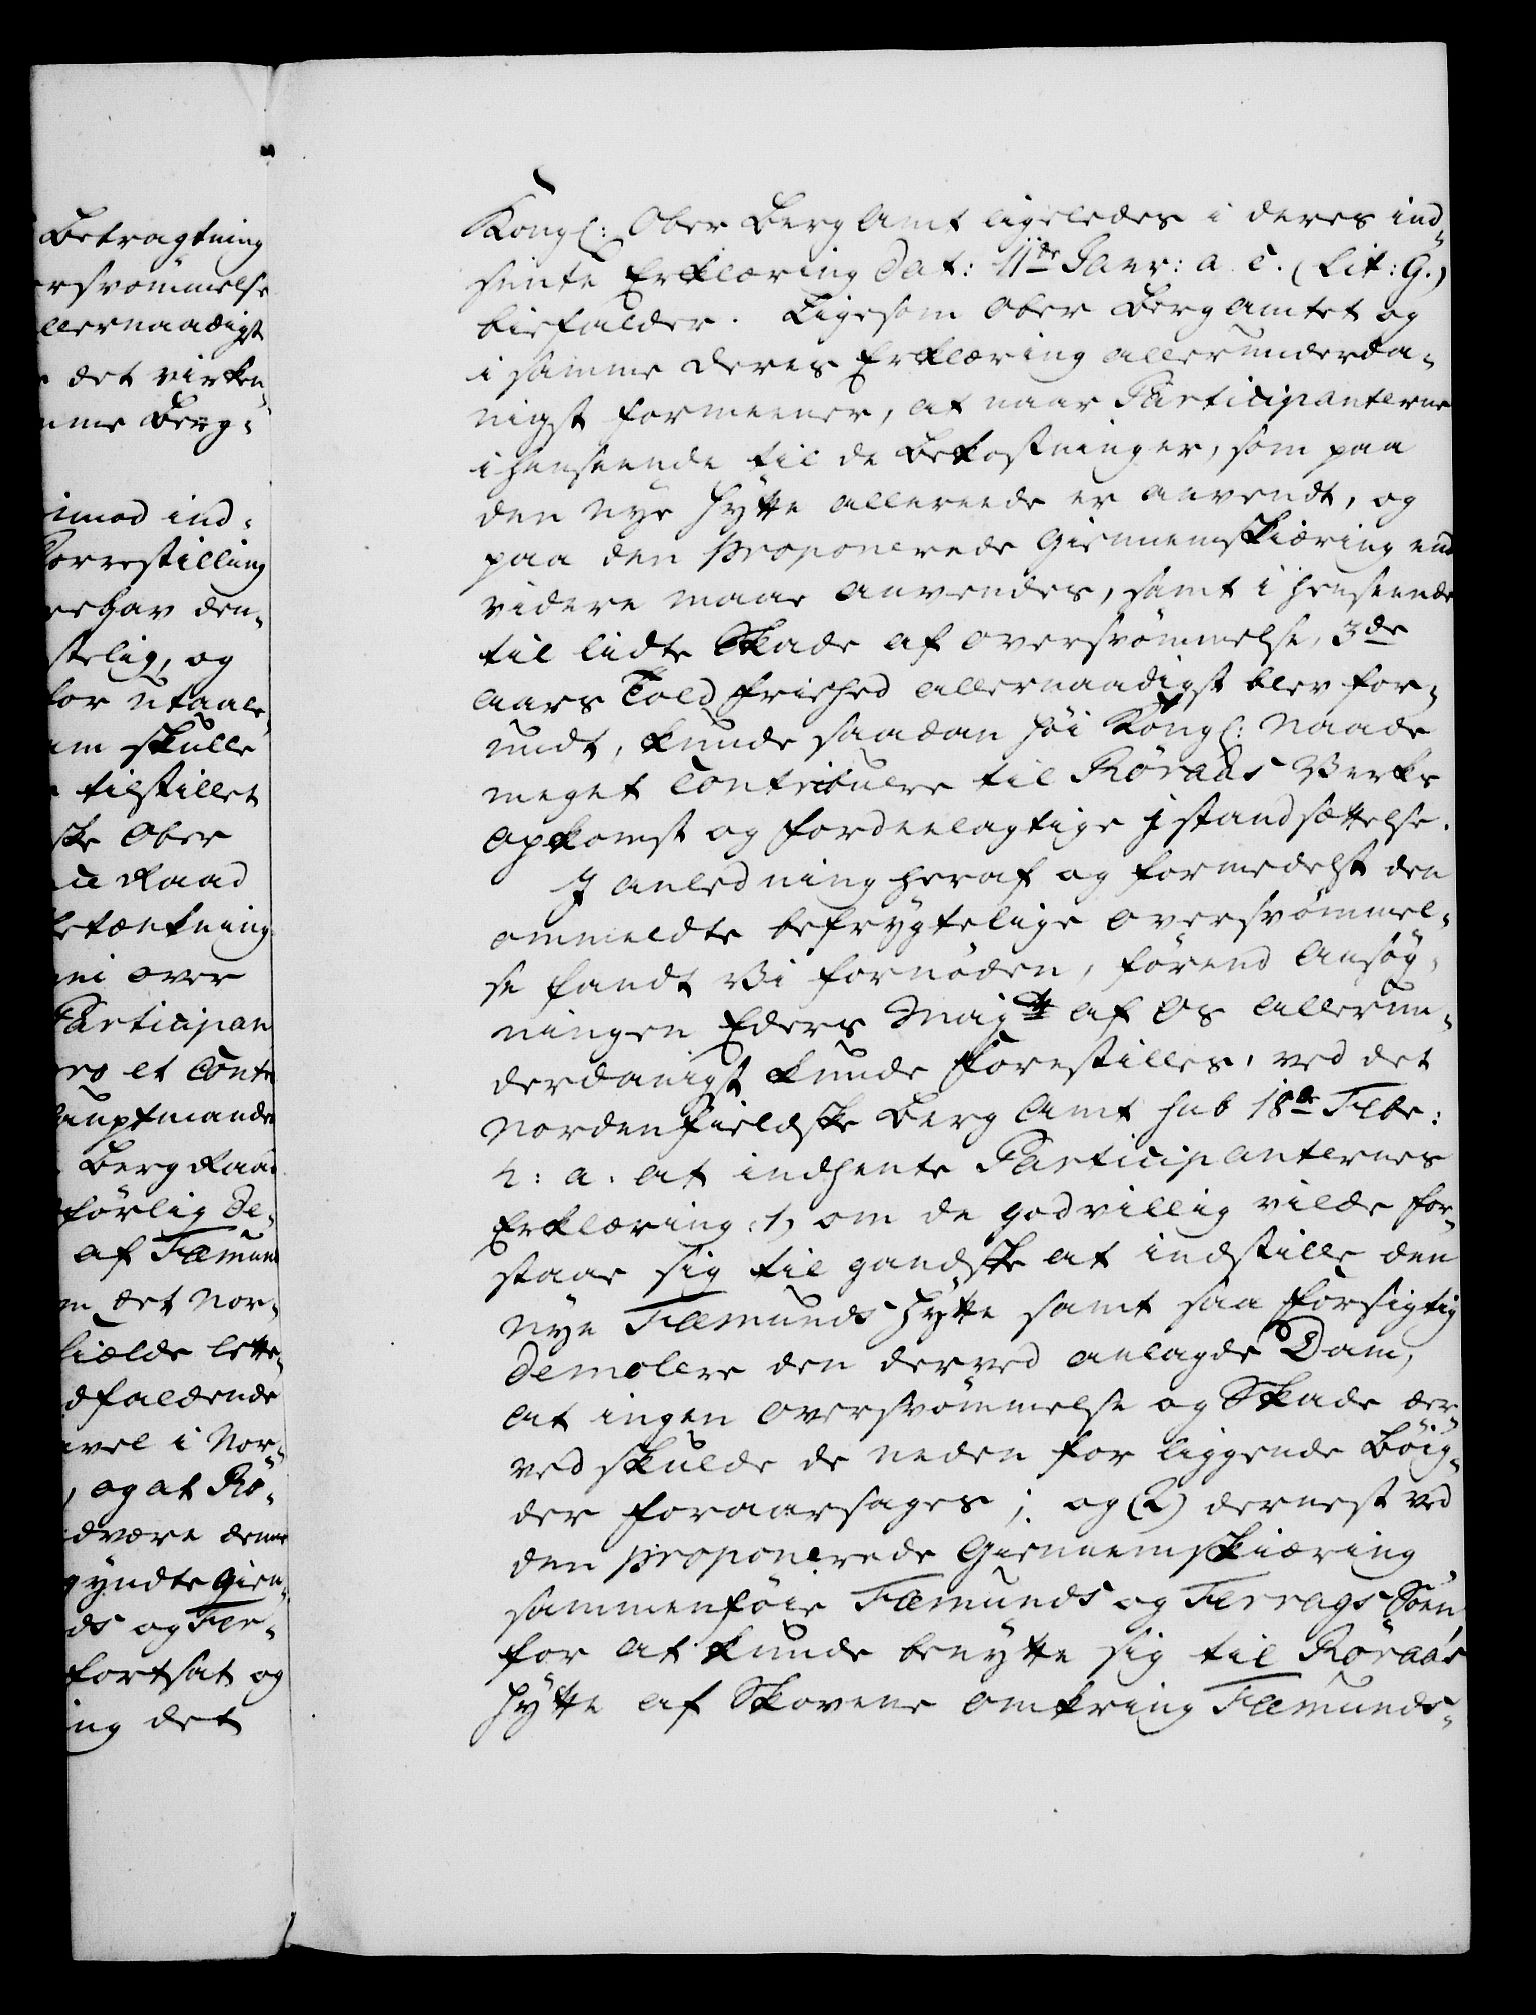 Betragtning
ersvømmelse
llernaadigst
det virken
mme Berg-
imod ind-
Forestilling
rehav den-
stelig, og
for utaale-
am skulle
tilstillet
ske Ober
Raad
betænkning
over
Participan
pro et Contr
hauptmanden
Berg Raad
førlig De-
af Fæmund
det Nor-
fiælde lette-
dfaldende
vel i Nor-
, og at Rø-
dvære denne
gyndte Gien-
ds og Fer-
fortsat og
ing det
Kongl: Ober Berg Amt ligeledes i deres ind-
sente Erklæring Dat: 11de Janr: a. c. (Lit: G.)
biefalder. Ligesom Ober Berg Amtet og
i samme deres Erklæring allerunderda-
nigst formeener, at naar Participanterne
i henseende til de Bekostninger, som paa
den nye Hytte allereede er anvendt, og
paa den proponerede Giennemskiæring end
videre maae anvendes, samt i henseende
til lidte Skade af oversvømmelse, 3de
aars Told friehed allernaadigst blev for-
undt, kunde saadan høi Kongl: Naade
meget Contribuere til Røraas Verks
opkomst og fordeelagtige istandsættelse.
I anledning heraf og formedelst den
ommeldte befrygtelige oversvømmel-
se fandt Vi fornøden, førend Ansøg-
ningen Eders Majts af Os allerun-
derdanigst kunde forestilles, ved det
Nordenfieldske Berg Amt sub 18de Febr:
h: a. at indhente Participanternes
Erklæring: 1, om de godvillig vilde for-
staae sig til gandske at indstille den
nye Fæmunds Hytte samt saa forsigtig
demolere den derved anlagde Dam,
at ingen oversvømmelse og Skade der
ved skulde de neden for liggende Bøig-
der foraarsages; og (2) dernest ved
den proponerede Giennemskiæring
sammenføie Fæmunds og Ferrags Søen,
for at kunde benytte sig til Røraas
Hytte af Skovene omkring Fæmunds-